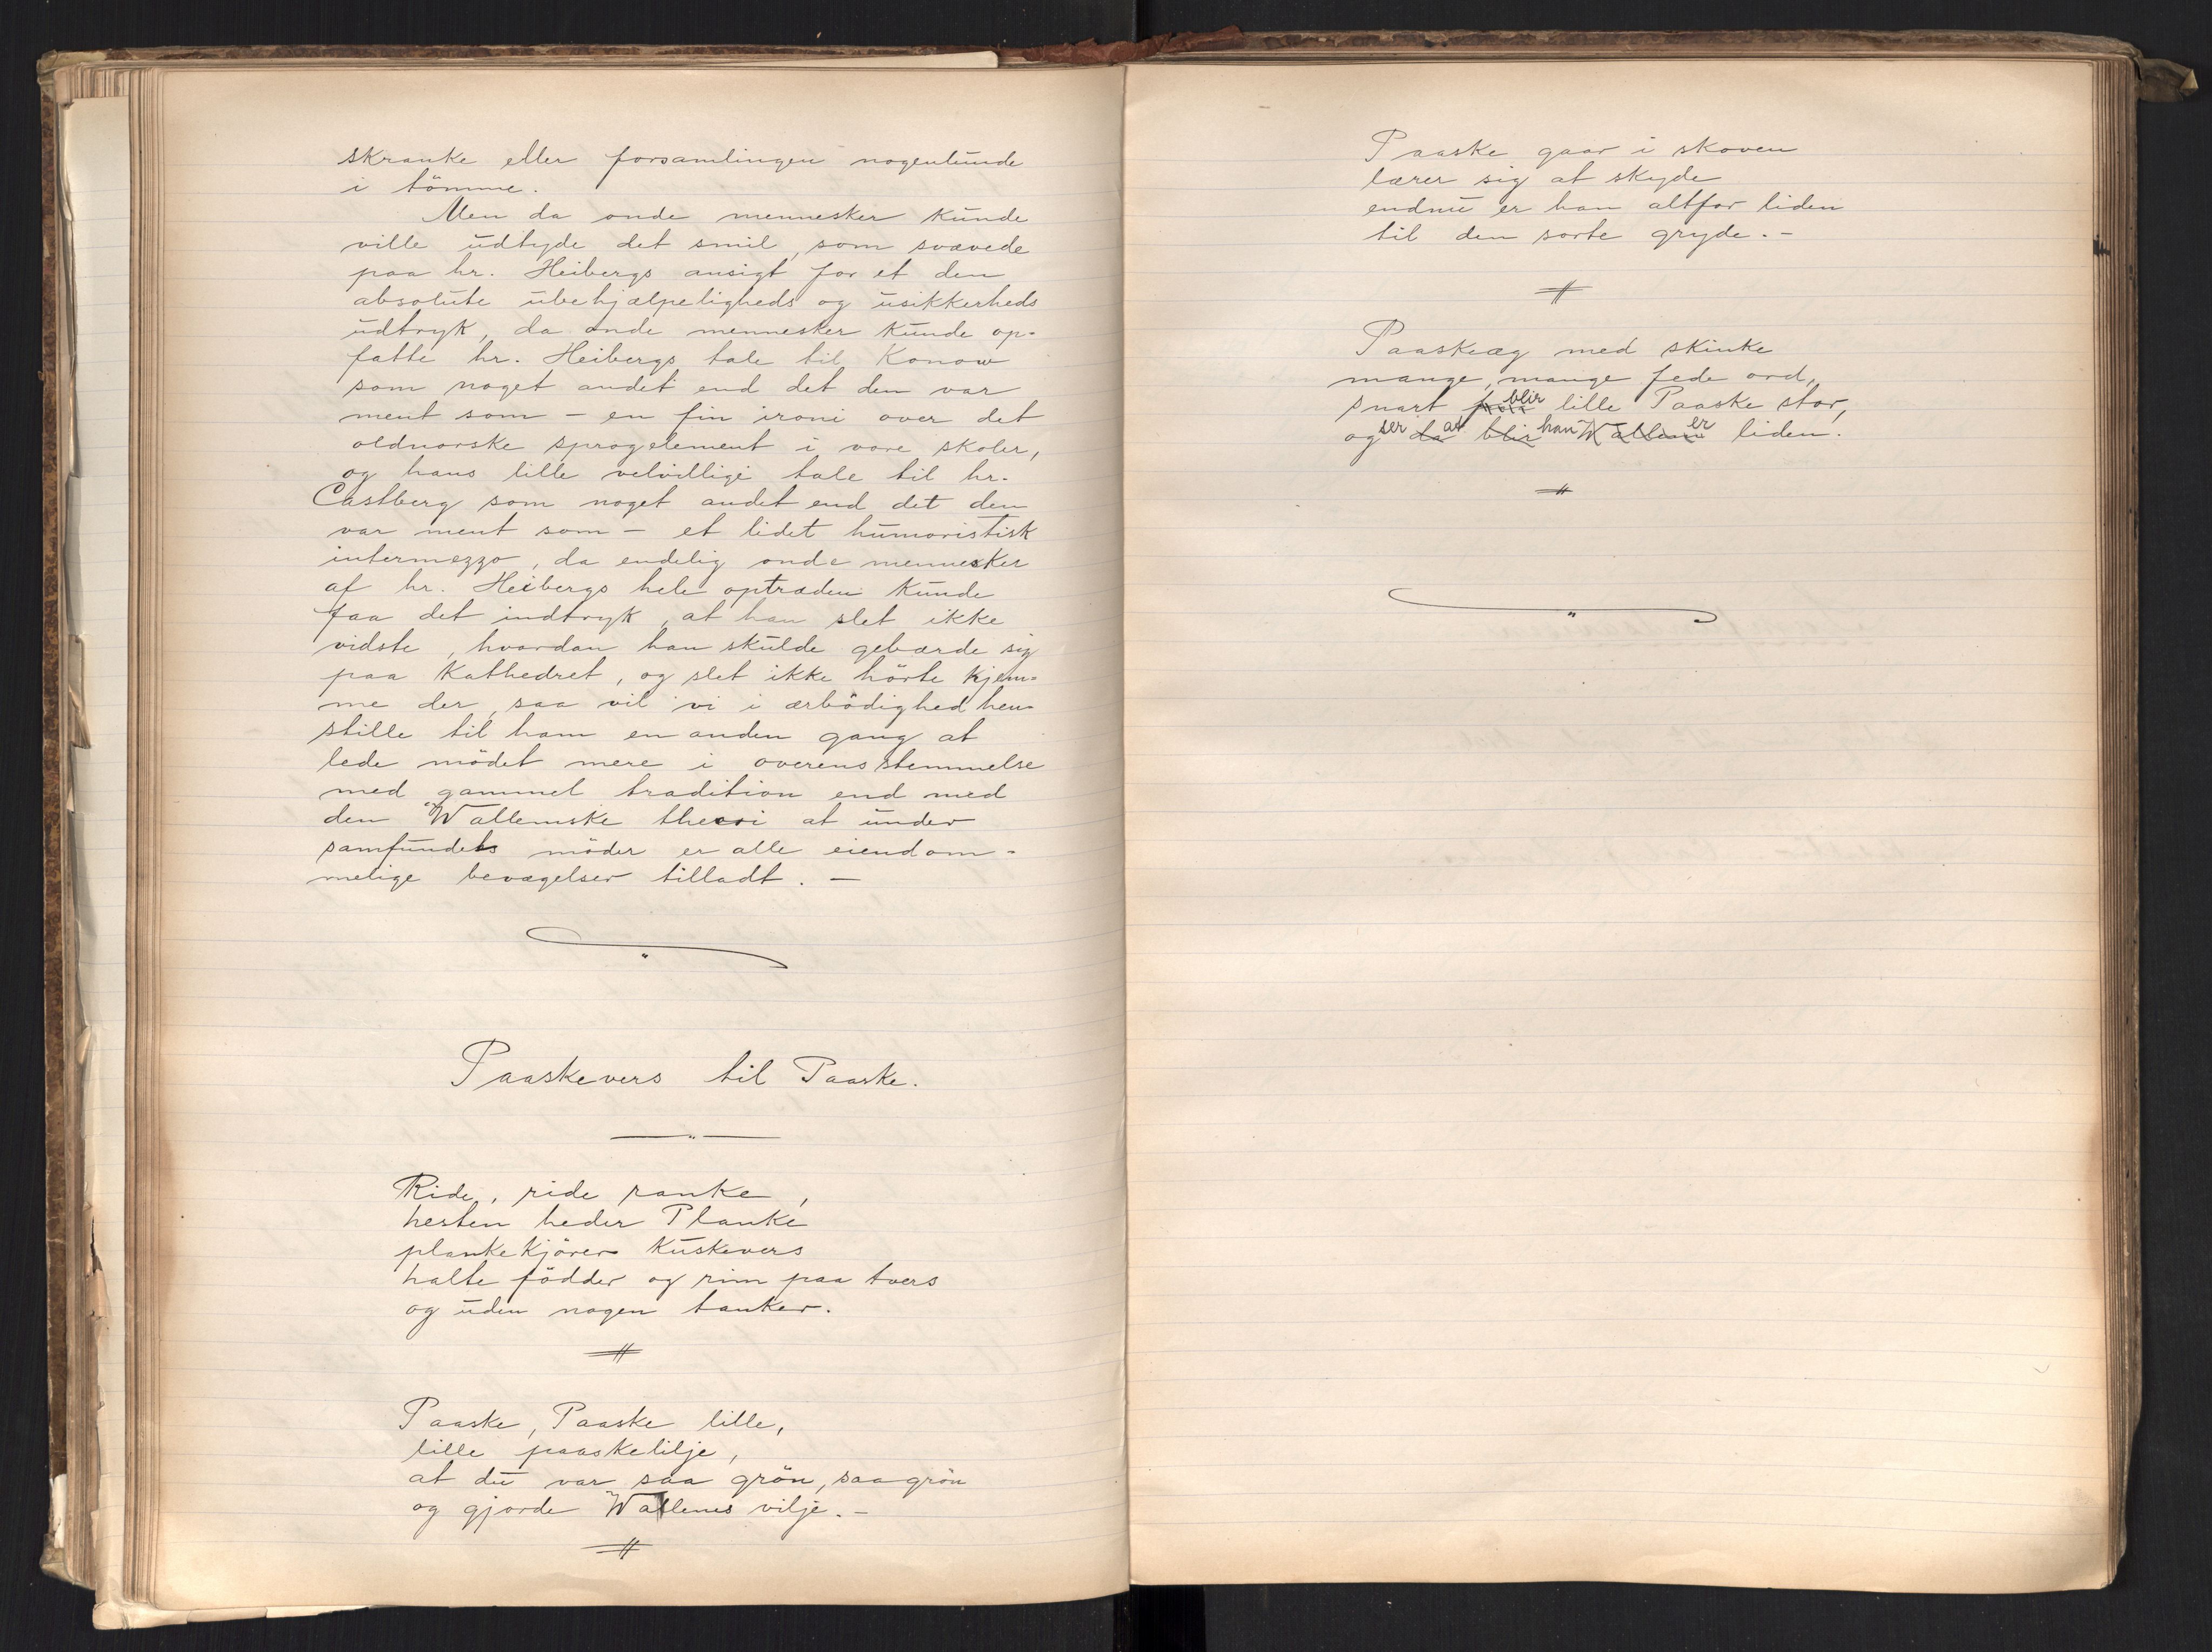 skranke eller forsamlingen nogenlunde
i tömme.
Men da onde mennesker kunde
ville udtyde det smil, som svævede
paa hr. Heibergs ansigt for et den
absolute ubehjælpeligheds og usikkerheds
udtryk, da onde mennesker kunde op-
fatte hr. Heibergs tale til Konow
som noget andet end det den var
ment som – en fin ironi over det
oldnorske sprogelement i vore skoler,
og hans lille velvillige tale til hr.
Castberg som noget andet end det den
var ment som – et lidet humoristisk
intermezzo, da endelig onde mennesker
af hr. Heibergs hele optræden kunde
faa det indtryk, at han slet ikke
vidste, hvordan han skulde gebærde sig
paa kathedret, og slet ikke hörte hjem-
me der, saa vil vi i ærbödighed hen-
stille til ham en anden gang at
lede mödet mere i overensstemmelse
med gammel tradition end med
den Wallemske theori at under
samfundets möder er alle eiendom-
melige bevægelser tilladt. –
Paaskevers til Paaske.
Ride, ride ranke,
hesten heder Planke
planke kjörer kuskevers
halte födder og rim paa tvers
og uden nogen tanker.
Paaske, Paaske lille,
lille paaskelilje,
at du var saa grön, saa grön
og gjorde Wallems vilje. –
Paaske gaar i skoven
lærer sig at skyde
endnu er han altfor liden
til den sorte gryde. –
Paaskeæg med skinke
mange, mange fede ord,
snart blir lille Paaske stor,
og ser da at blir han Wallem er liden.